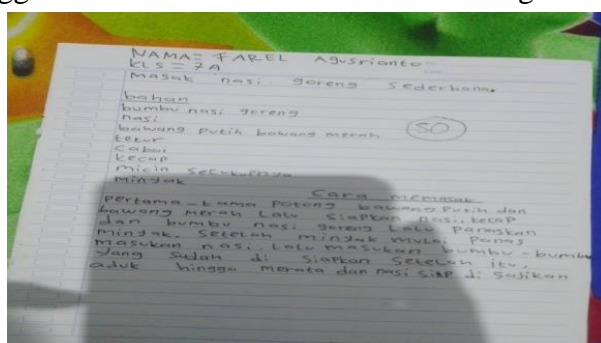 NAMA = FAREL Agusrianto
KLS = 7A
Masak nasi goreng sederhana.
bahan
bumbu nasi goreng
nasi
bawang putih bawang merah
telur
Cabai
kecap
micin secukupnya
minyak
50
Cara memasak
pertama-tama potong bawang putih dan
bawang merah Lalu siapkan nasi, kecap
dan bumbu nasi goreng Lalu panaskan
minyak. setelah minyak mulai panas
masukan nasi Lalu masukan bumbu-bumbu
yang sudah di siapkan setelah itu,
aduk hingga merata dan nasi siap di sajikan